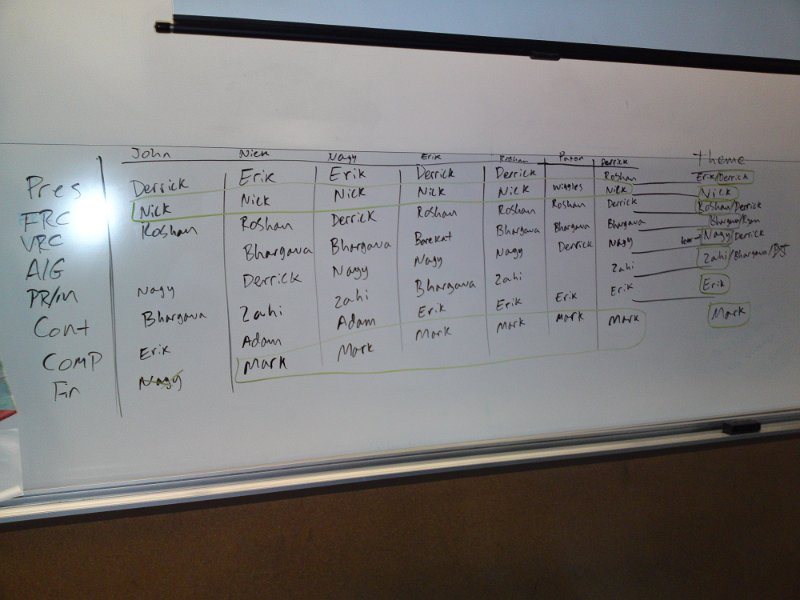 John Nick Nagy Erik Roshan Paton Derrick Theme
Pres Derrick Erik Erik Derrick Derrick Roshan Erik/Derrick
FRC Nick Nick Nick Nick Nick wiggles Nick Nick
VRC Roshan Roshan Derrick Roshan Roshan Roshan Derrick Roshan/Derrick
A/G Bhargava Bhargava Barekat Bhargava Bhargava Bhargava Bhargava/Ryan
PR/m Nagy Derrick Nagy Nagy Nagy Derrick Nagy Nagy/Derrick
Cont Bhargava Zahi Zahi Bhargava Zahi Zahi Zahi/Bhargava/
COMP Erik Adam Adam Erik Erik Erik Erik Erik
Fin Nagy Mark Mark Mark Mark Mark Mark Mark